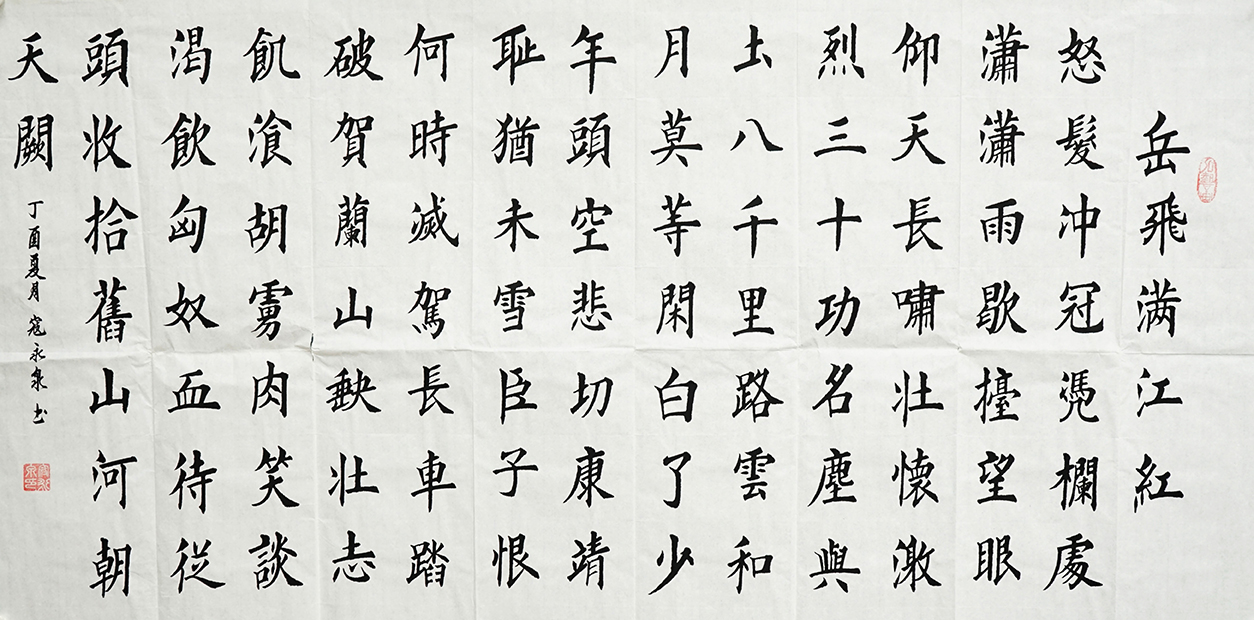 岳飛满江紅
怒髮冲冠凴欄處
瀟瀟雨歇擡望眼
仰天長嘯壮懷激
烈三十功名塵與
土八千里路雲和
月莫等閑白了少
年頭空悲切康靖
耻猶未雪臣子恨
何時滅駕長車踏
破賀蘭山缺壮志
飢湌胡虜肉笑談
渴飲匈奴血待從
頭收拾舊山河朝
天闕
丁酉夏月寇永泉书